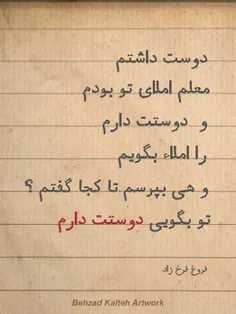 دوست داشتم
معلم املای تو بودم
و دوستت دارم
را املاء بگویم
و هی بپرسم تا کجا گفتم ؟
تو بگویی دوستت دارم
فروغ فرخ زاد
Behzad Kalteh Artwork